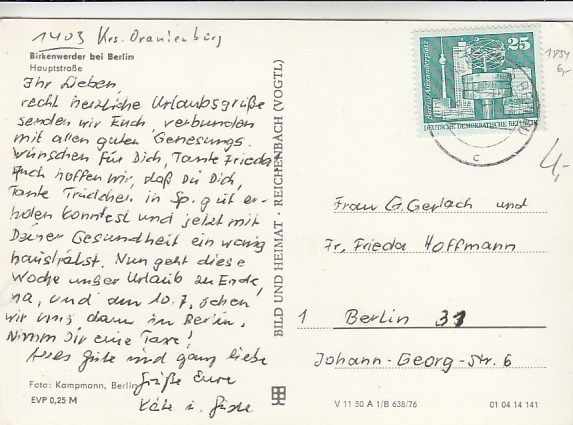 1403 Krs. Oranienburg
Birkenwerder bei Berlin
Hauptstraße
Ihr Lieben,
recht herzliche Urlaubsgrüße
senden wir Euch verbunden
mit allen guten Genesungs-
wünschen für Dich, Tante Frieda.
Auch hoffen wir, daß Du Dich,
Tante Trudchen in Sp. gut er-
holen konntest und jetzt mit
Deiner Gesundheit ein wenig
haushälst. Nun geht diese
Woche unser Urlaub zu Ende,
na, und am 10.7. sehen
wir uns dann in Berlin.
Nimm Dir eine Taxe!
Alles Gute und ganz liebe
Grüße Eure
Foto: Kampmann, Berlin
EVP 0,25 M
BILD UND HEIMAT · REICHENBACH (VOGTL)
25
Berlin, Alexanderplatz
DEUTSCHE DEMOKRATISCHE REPUBLIK
c
1854
6,-
4,-
Frau G. Gerlach und
Fr. Frieda Hoffmann
1 Berlin 31
Johann-Georg-Str. 6
V 11 50 A 1/B 638/76
01 04 14 141